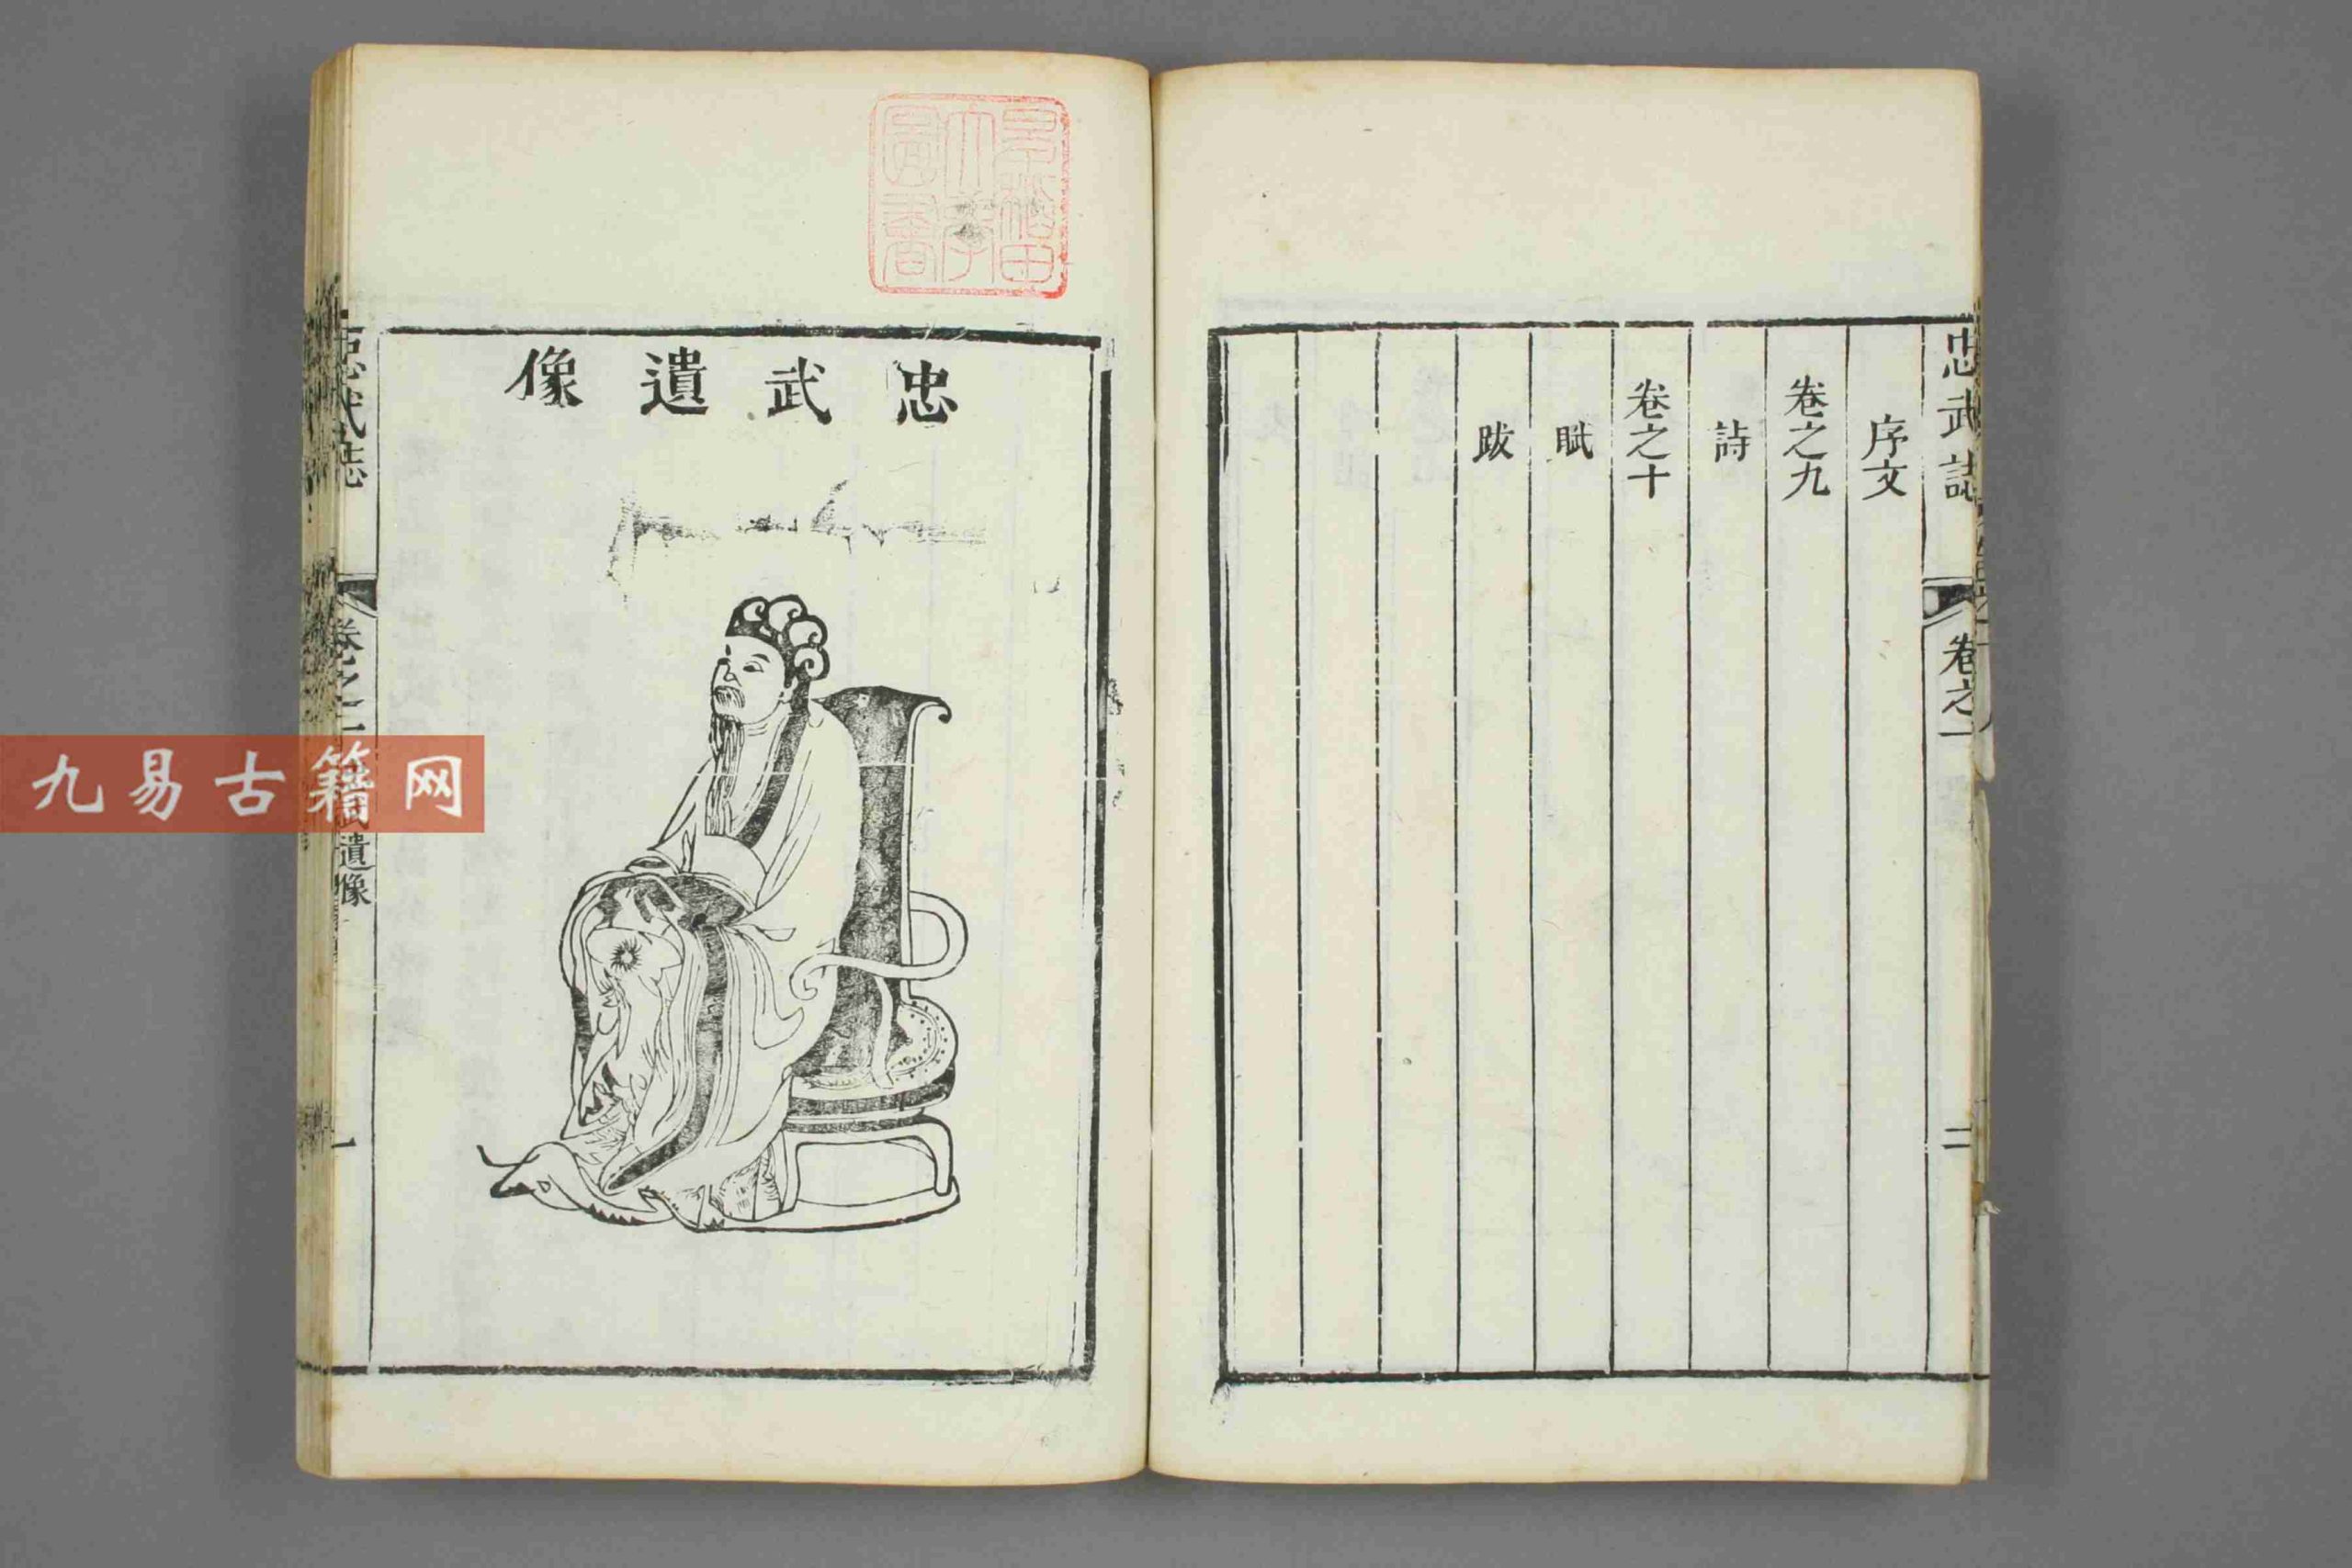 忠武誌
卷之一
二
序文
卷之九
詩
卷之十
賦
跋
早稲田
大学
圖書
忠武遺像
忠武誌
卷之一
遺像
一
九易古籍网